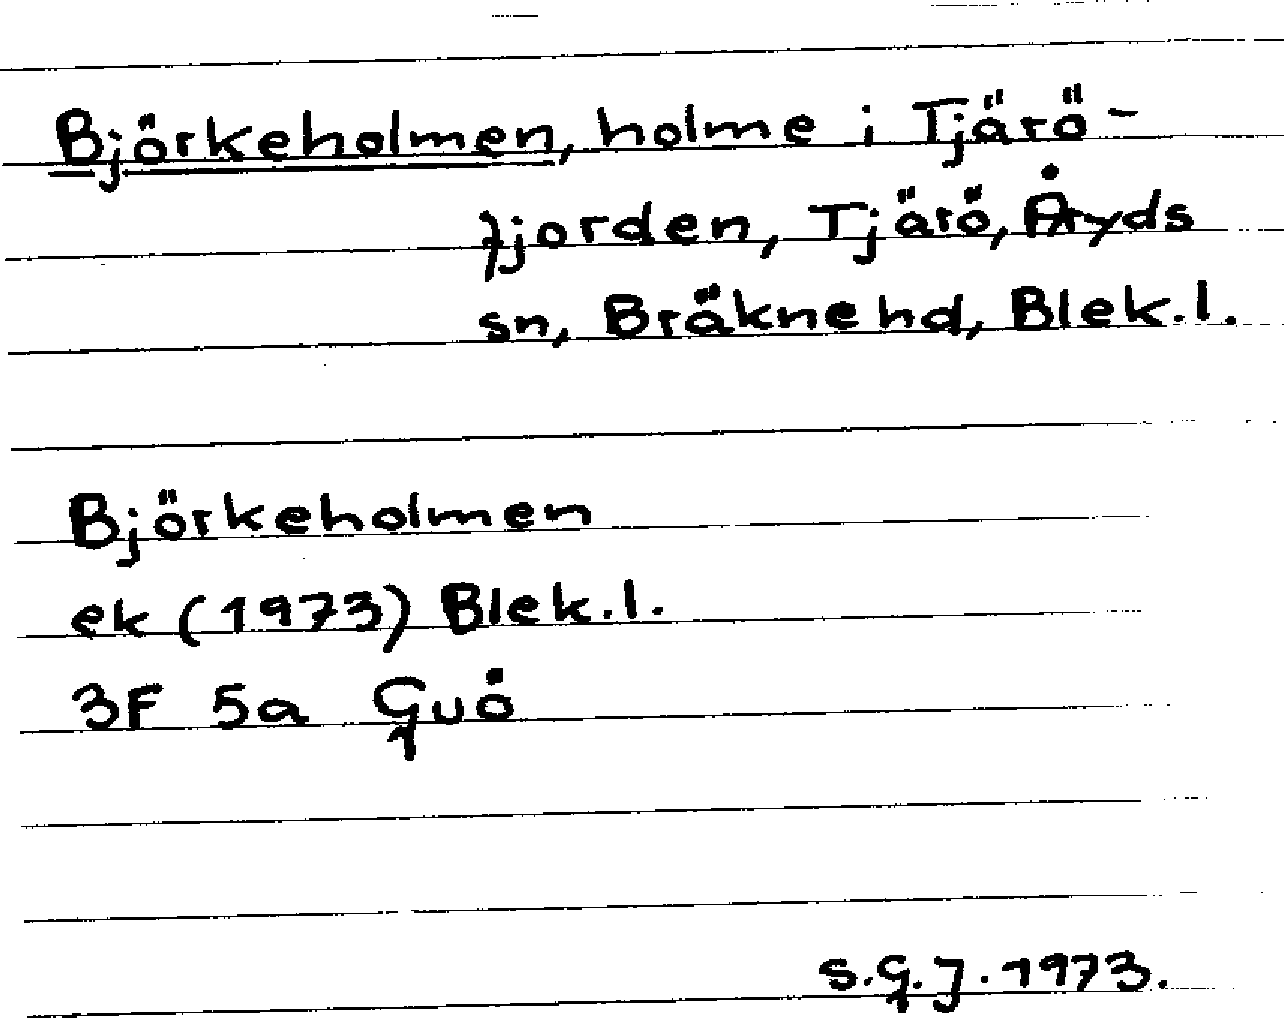 Björkeholmen, holme i Tjärö-
fjorden, Tjärö, Åryds
sn, Bräkne hd, Blek.l.
Björkeholmen
ek (1973) Blek.l.
3F 5a Guö
S.G.J. 1973.